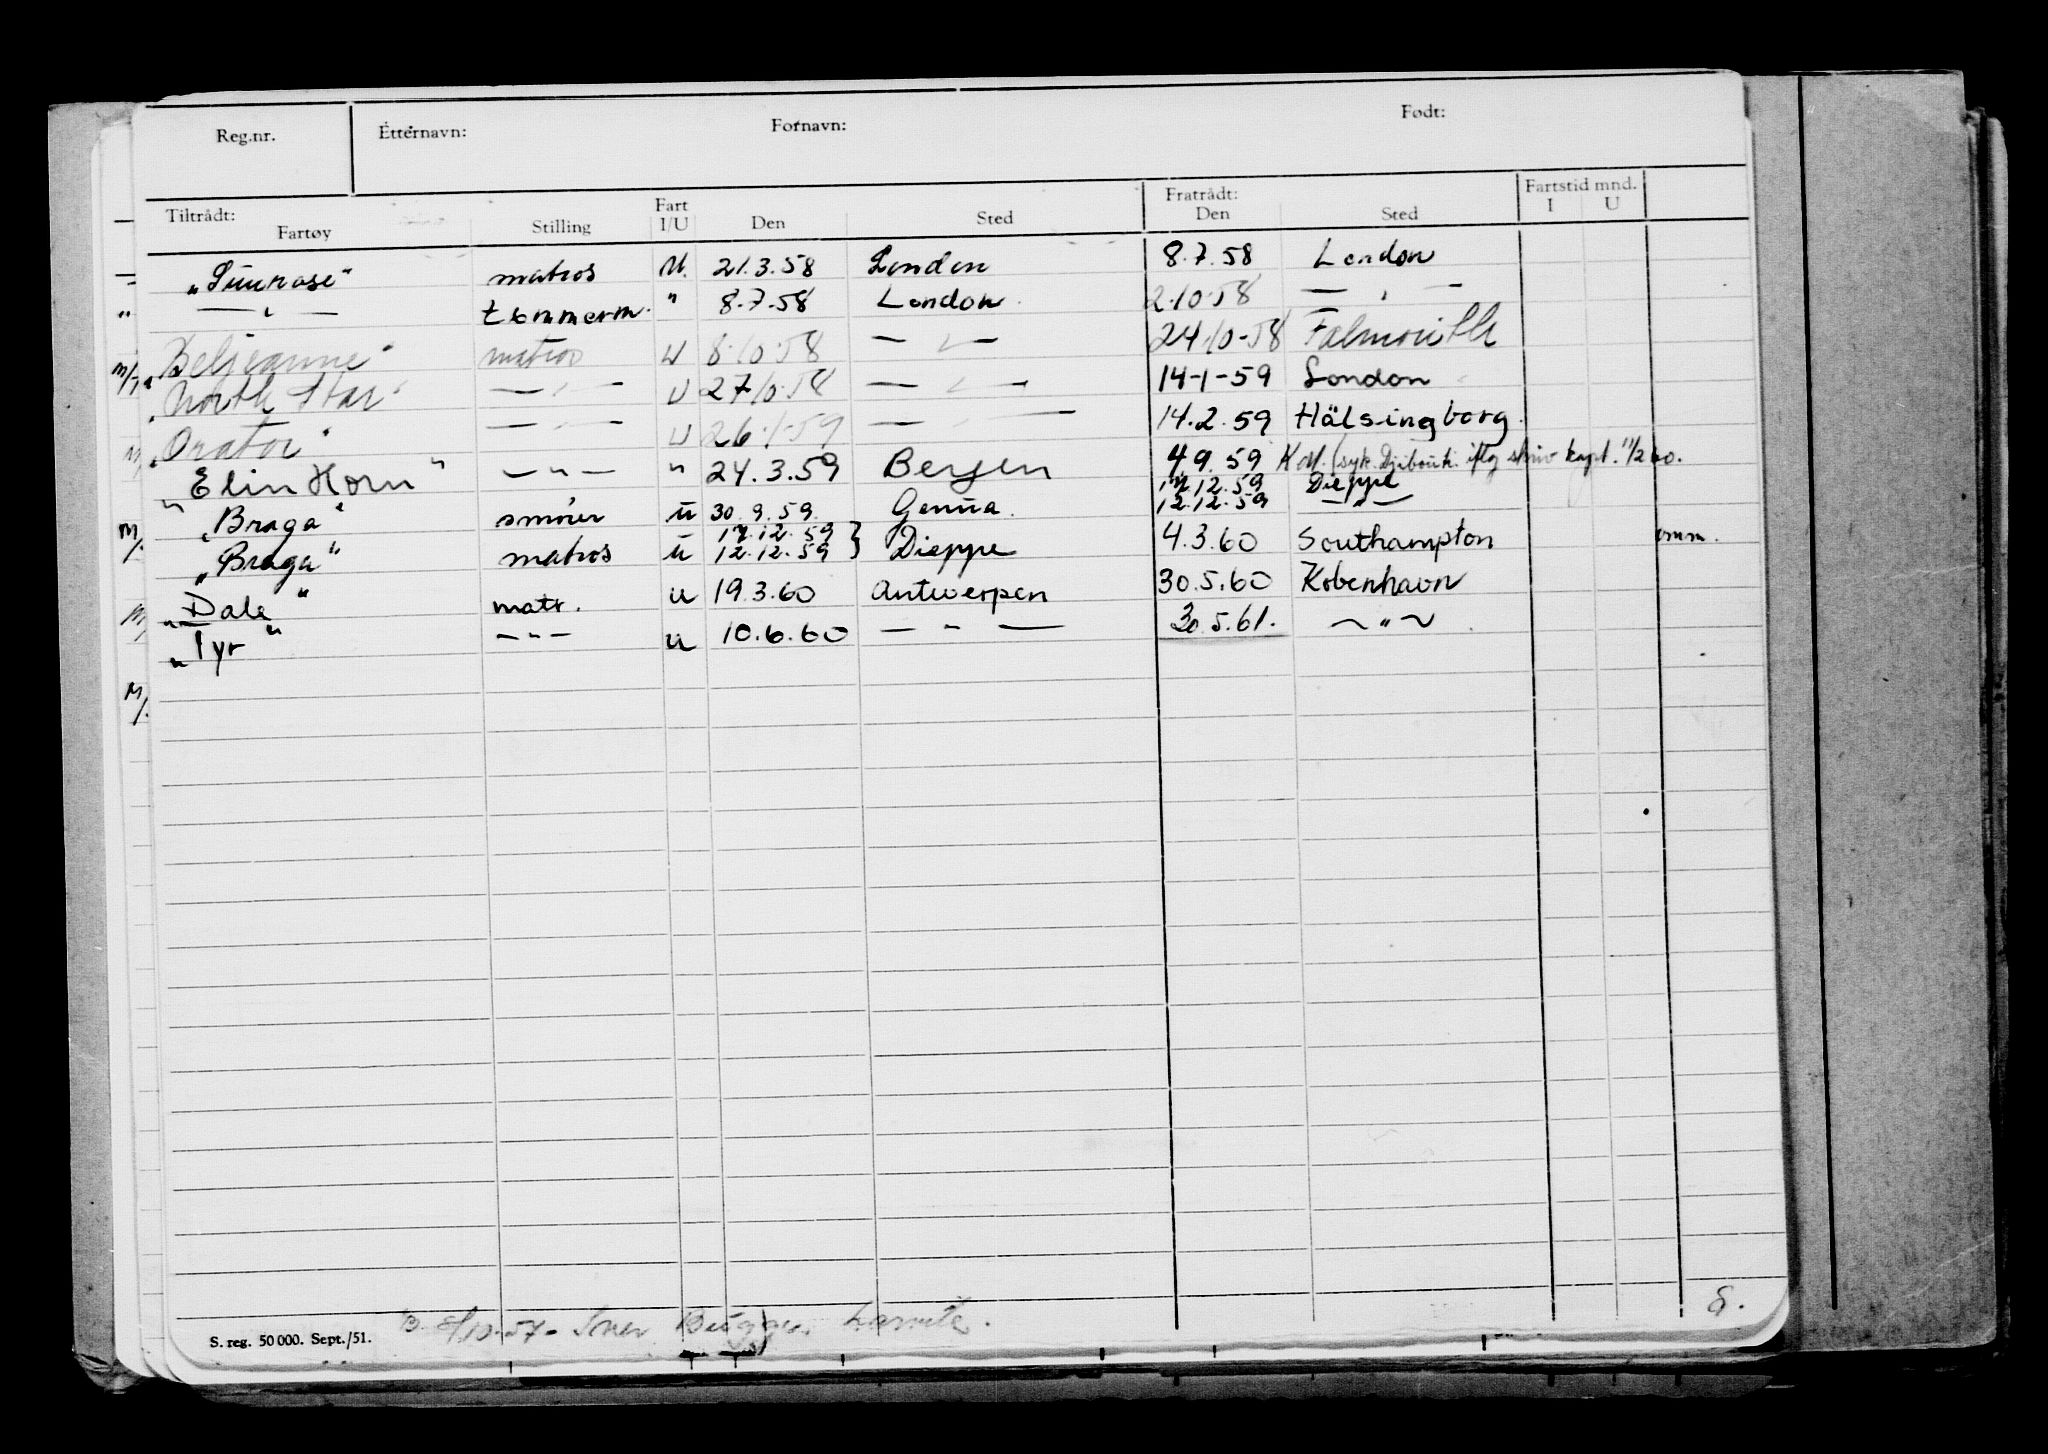 Reg.nr. Etternavn: Fornavn: Født:
Tiltrådt: Fratrådt: Fartstid mnd.
Fartøy Stilling Fart I/U Den Sted Den Sted I U
matros U. 21.3.58 London 8.7.58 London
" — " — tømmerm. " 8.7.58 London 2.10.58 — " —
"Beljeanne" matros U 8.10.58 — " — 24.10-58 Falmouth
M/T "North Star" — " — U 27.10.58 — " — 14-1-59 London
"Orator" — " — U 26.1.59 — " — 14.2.59 Hälsingborg.
"Elin Horn" — " — " 24.3.59 Bergen 4.9.59 (syk. Djibouti. iflg skriv kapt. 11/2 60.
17.12.59 Dieppe
"Braga" smører ū 30.9.59. Genua. 12.12.59 — " —
17.12.59
M/. "Braga" matros ū 12.12.59 } Dieppe 4.3.60 Southampton omm.
"Dale" matr. u 19.3.60 Antwerpen 30.5.60 København
"Tyr" — " — u 10.6.60 — " — 30.5.61. ~ " ~
M/.
S. reg. 50 000. Sept./51. B. 8/10-57-